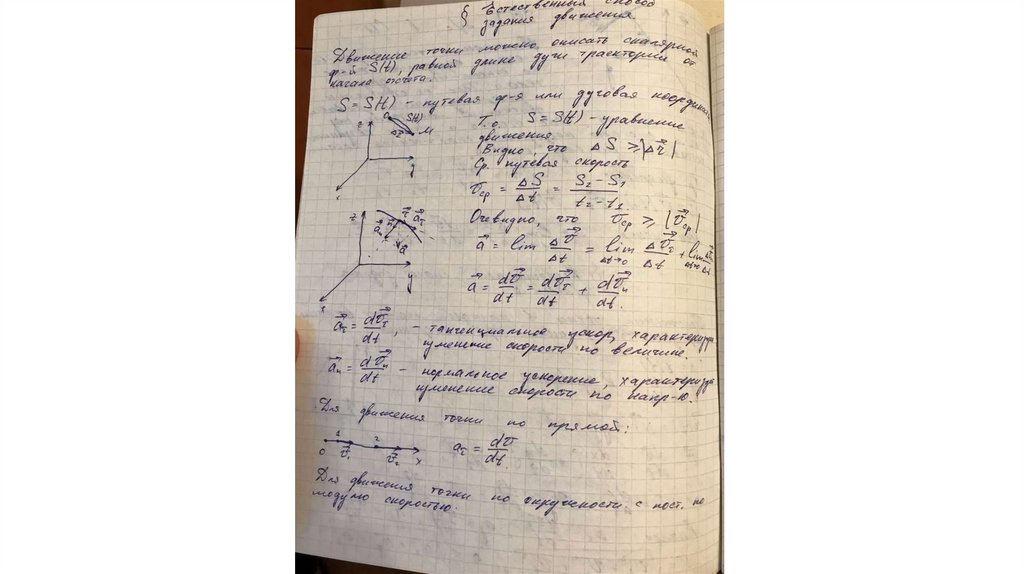 § Естественный способ
задания движения.
Движение точки можно описать скалярной
ф-й S(t), равной длине дуги траектории от
начала отсчета.
S = S(t) - путевая ф-я или дуговая координата
z O S(t) Δr⃗ M y x
Т.о. S = S(t) - уравнение
движения
Видно, что ΔS ≥ |Δr⃗|
Ср. путевая скорость
υср = ΔS/Δt = (S₂ - S₁)/(t₂ - t₁)
Очевидно, что υср ≥ |υ⃗ср|
z τ⃗ a⃗τ n⃗ a⃗n a⃗ y x
a⃗ = lim Δυ⃗/Δt = lim Δt→0 Δυ⃗τ/Δt + lim Δt→0
a⃗ = dυ⃗/dt = dυ⃗τ/dt + dυ⃗n/dt.
a⃗τ = dυ⃗τ/dt, - тангенциальное ускор, характеризующ
изменение скорости по величине.
a⃗n = dυ⃗n/dt - нормальное ускорение, характеризующ
изменение скорости по напр-ю.
Для движения точки по прямой:
0 1 υ⃗₁ 2 υ⃗₂ x
aτ = dυ/dt.
Для движения точки по окружности с пост. по
модулю скоростью.